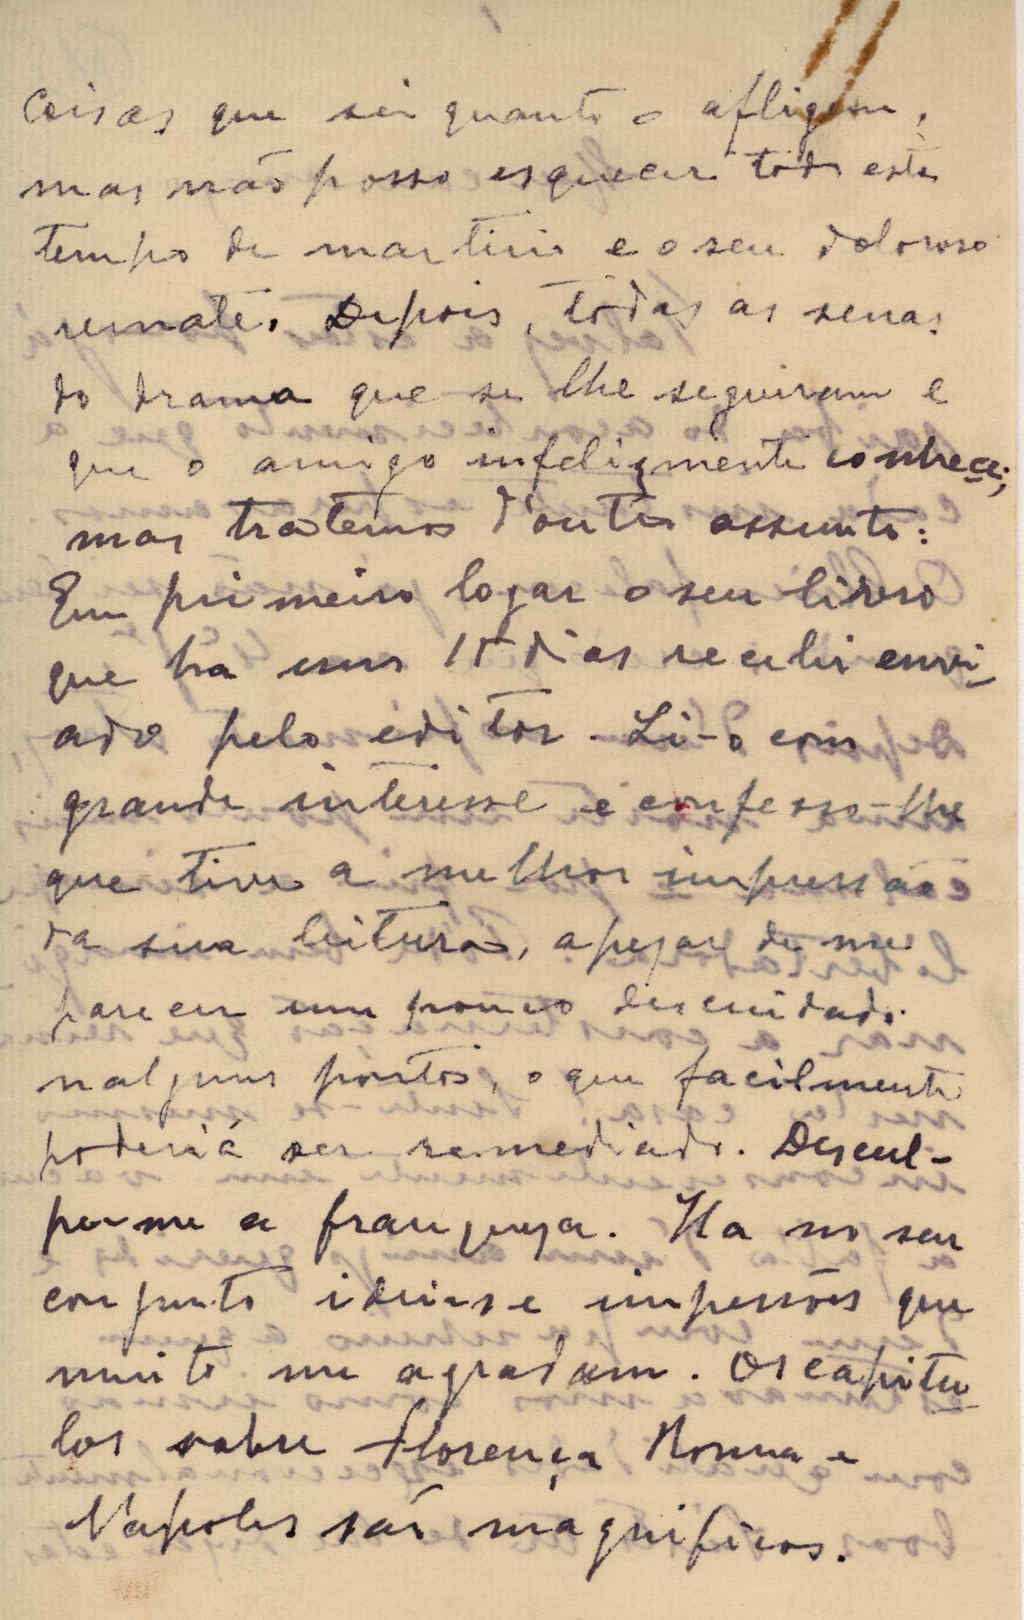 Coisas que sei quanto o afligem,
mas não posso esquecer todo este
tempo de martirio e o seu doloroso
remate. Depois, todas as senas
do drama que se lhe seguiram e
que o amigo infelizmente conhece;
mas tratemos d'outro assunto:
Em primeiro logar o seu livro
que ha uns 15 dias recebi envi-
ado pelo editor. Li-o com
grande interesse e confesso-lhe
que tive a melhor impressão
da sua leitura, apezar de me
parecer um pouco descuidado
nalguns pontos, o que facilmente
poderia ser remediado. Descul-
pe-me a franqueza. Ha no seu
conjunto ideias e impressões que
muito me agradam. Os capitu-
los sobre Florença Roma e
Napoles são magnificos.